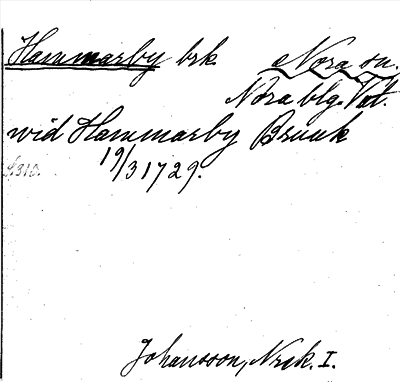 Hammarby brk. Nora sn.
Nora blg. Väst.
wid Hammarby Bruuk
19/3 1729.
S. 310.
Johansson, Nrik. I.